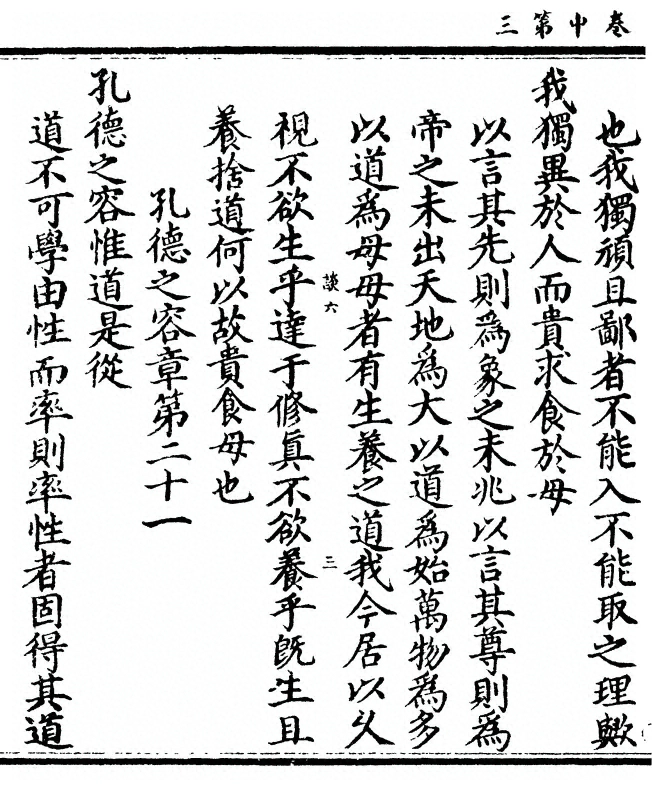 卷中第三
也我獨頑且鄙者不能入不能取之理歟
我獨異於人而貴求食於母
以言其先則爲象之未兆以言其尊則爲
帝之未出天地爲大以道爲始萬物爲多
以道爲母母者有生養之道我今居以久
談六
三
視不欲生乎達于修眞不欲養乎旣生且
養捨道何以故貴食母也
孔德之容章第二十一
孔德之容惟道是從
道不可學由性而率則率性者固得其道